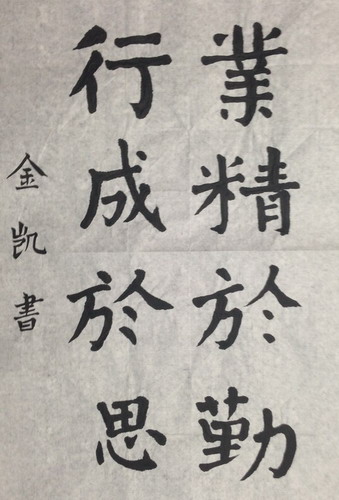 業精於勤
行成於思
金凯書